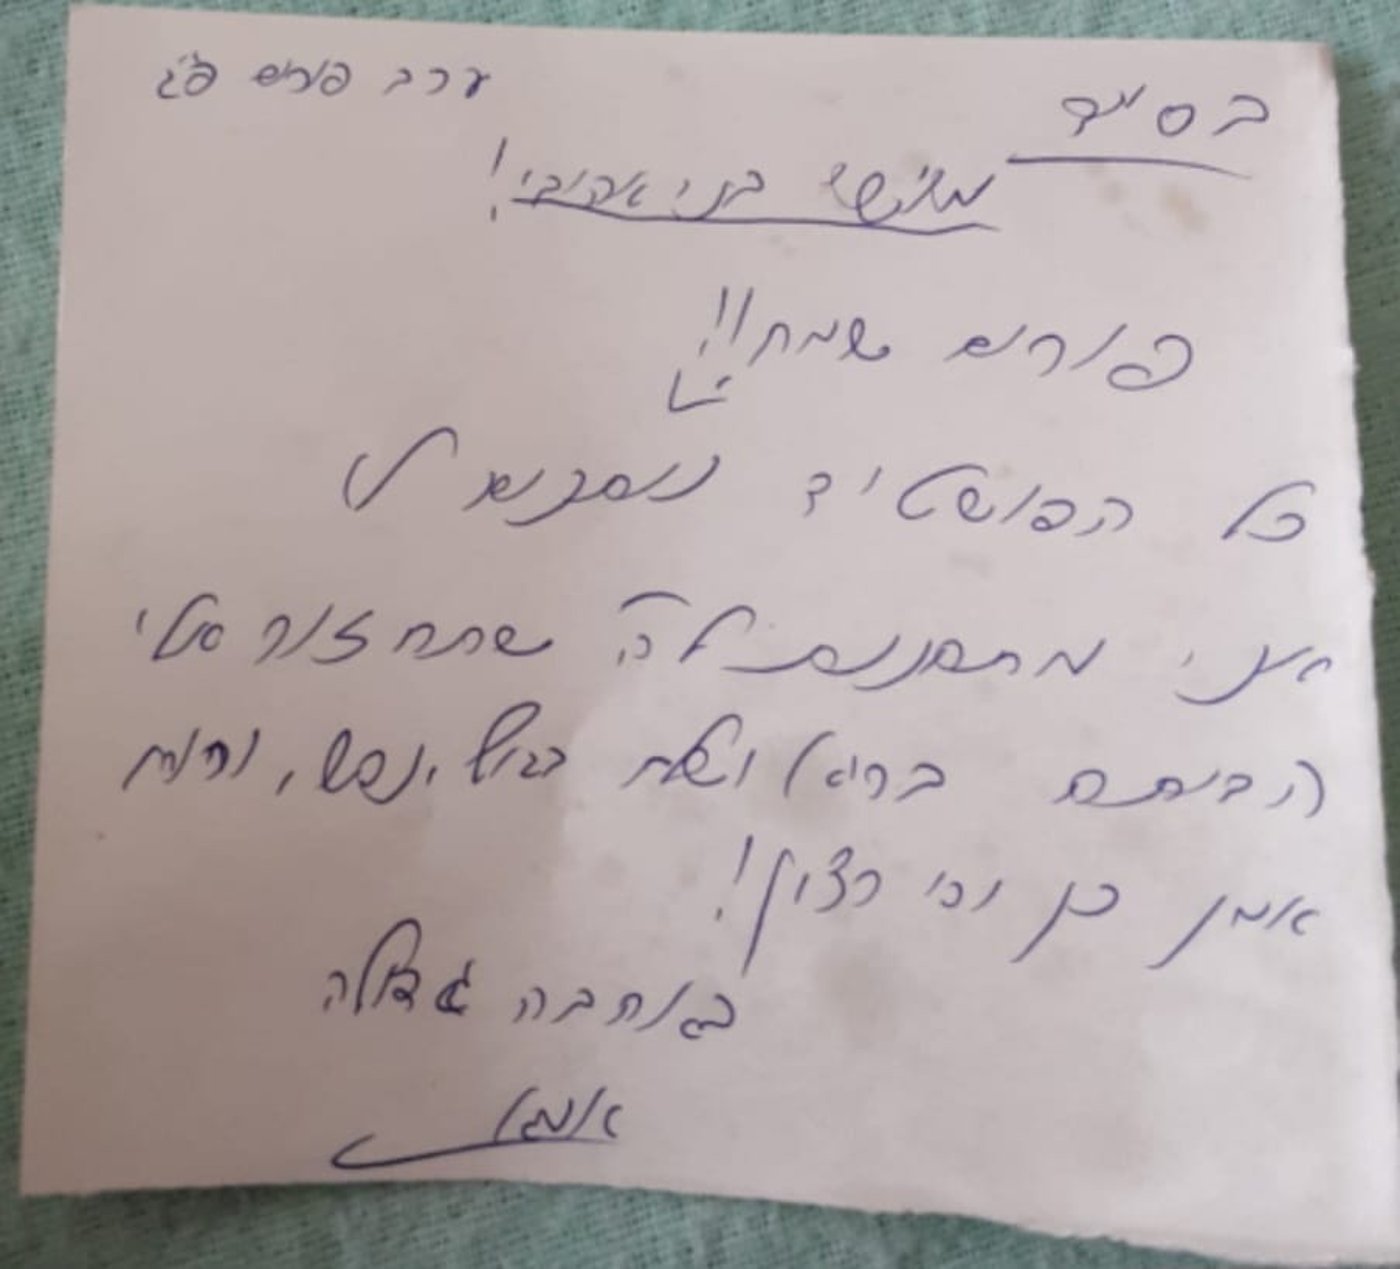 בס"ד
ערב פורים פ"ג
בני אהובי!
פורים שמח!!
כל הפושטיד נוסכים לו
ואני מתפללת לה' שתחזור אלי
הביתה בריא ושלם בגוף, נפש, ורוח
אמן כן יהי רצון!
באהבה גדולה
אמא